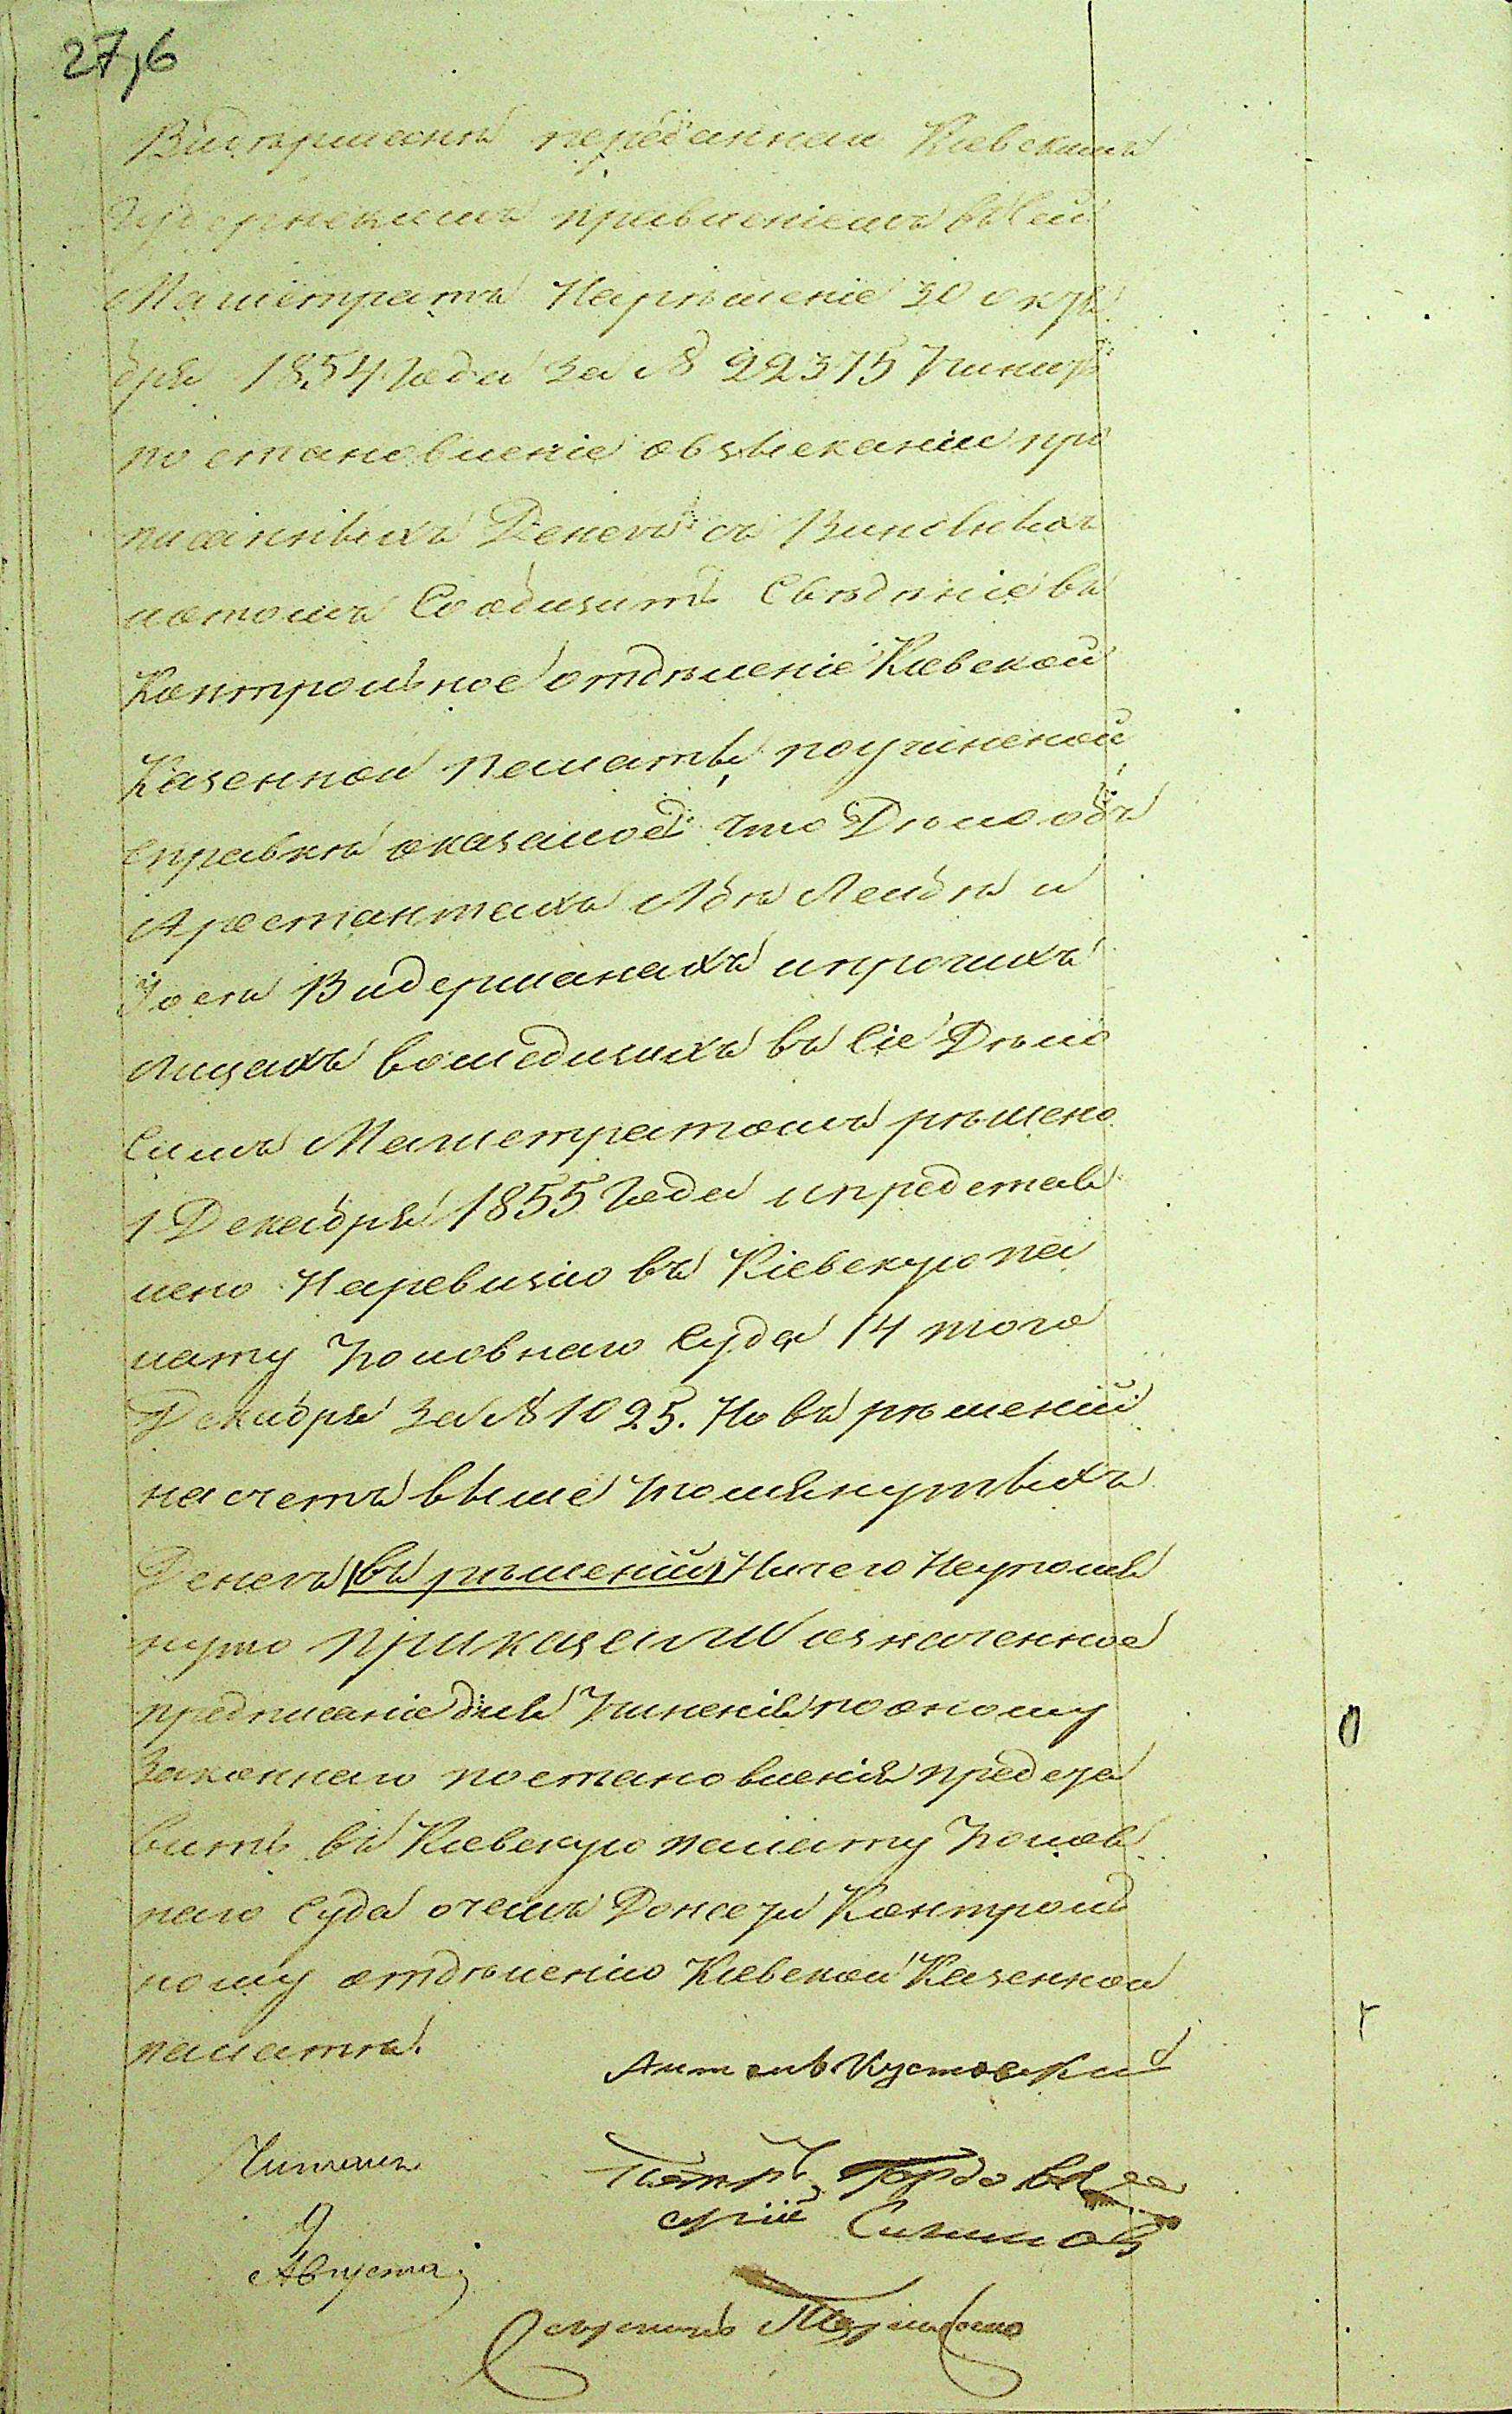 27,6
Видерманѣ переданная Кіевскимъ
Губернскимъ правленіемъ въ сей
Магистратъ На рѣшеніе 30 октя
бря 1854 года за № 22375 Учинитъ
постановленіе овзысканіи про
писанныхъ Денегъ съ Виновныхъ
иотомъ Сообщить Свѣдѣніе въ
Контрольное отдѣленіе Кіевской
Казенной палаты, поучиненой
справкѣ оказалось что Дѣло объ
Арестантахъ Лейбѣ и
Іосѣ Видерманахъ ипрочихъ
лицахъ вошедшихъ въ Сіе Дѣло
Симъ Магистратомъ рѣшено
1 Декабря 1855 года ипредстав
лено На ревизію въ Кіевскую па
лату Уголовнаго Суда 14 того
Декабря за № 1025. Но въ рѣшеніи
насчетъ выше Упомянутыхъ
Денегъ (въ рѣшеніи) Ничего Неупомя
нуто Приказали означенное
предписаніе для Учиненія пооному
Законнаго постановленія предста
вить въ Кіевскую палату Уголов
наго Суда очемъ Донести Контроль
ному отдѣленію Кіевской Казенной
палаты.
Читалъ
9
Августа
Секретарь